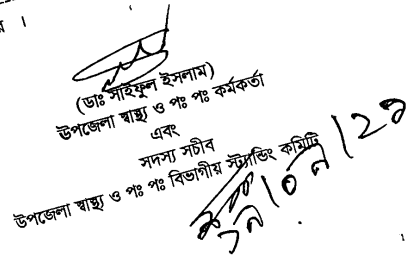 র ।
(ডাঃ সাইফুল ইসলাম)
উপজেলা স্বাস্থ্য ও পঃ পঃ কর্মকর্তা
এবং
সদস্য সচীব
উপজেলা স্বাস্থ্য ও পঃ পঃ বিভাগীয় স্ট্যান্ডিং কমিটি